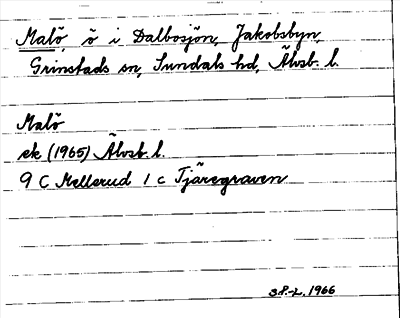 Malö, ö i Dalbosjön, Jakobsbyn,
Grinstads sn, Sundals hd, Älvsb. l.
Malö
ek (1965) Älvsb. l.
9 C Mellerud 1 c Tjäregraven
1966